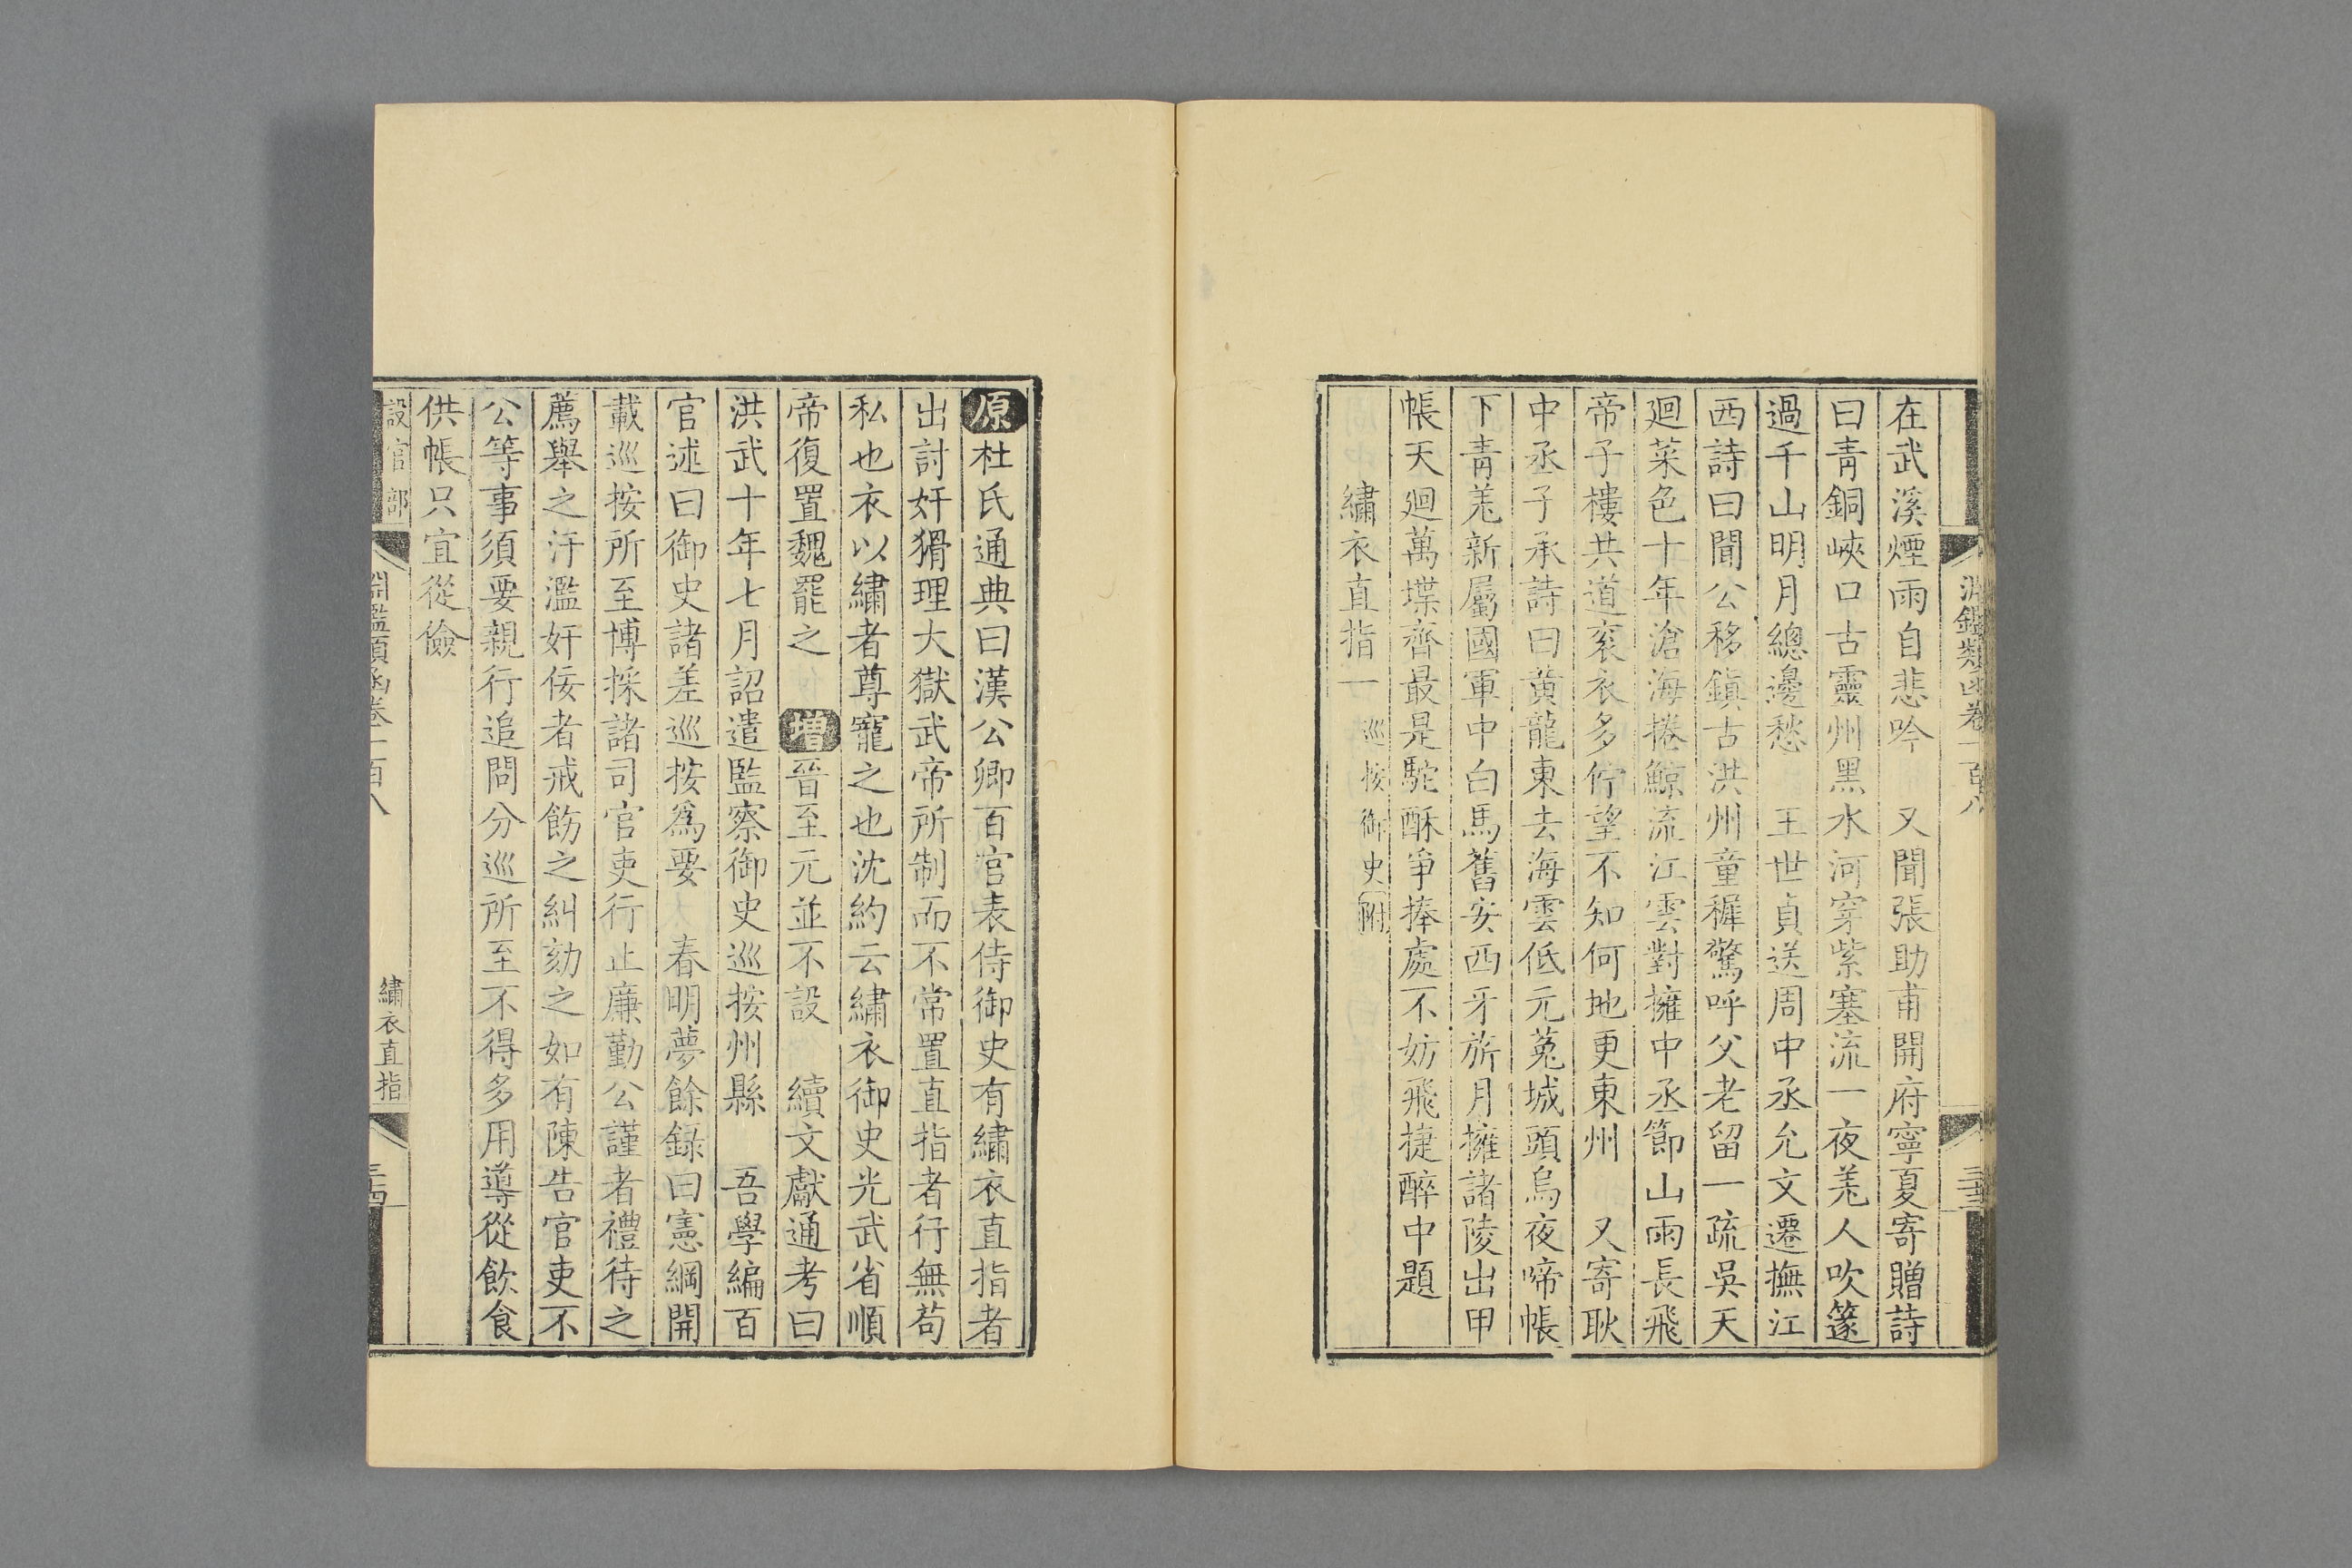 淵鑑類函卷一百八
三十三
在武溪煙雨自悲吟　又聞張助甫開府寧夏寄贈詩
曰青銅峽口古靈州黑水河穿紫塞流一夜羌人吹篴
過千山明月總邊愁　王世貞送周中丞允文遷撫江
西詩曰聞公移鎭古洪州童穉驚呼父老留一疏吳天
廻菜色十年滄海捲鯨流江雲對擁中丞節山雨長飛
帝子樓共道衮衣多佇望不知何地更東州　又寄耿
中丞子承詩曰黃龍東去海雲低元菟城頭烏夜啼帳
下靑羌新屬國軍中白馬舊安西牙旂月擁諸陵出甲
帳天廻萬堞齊最是駝酥爭捧處不妨飛捷醉中題
繡衣直指一巡按御史附
原杜氏通典曰漢公卿百官表侍御史有繡衣直指者
出討奸猾理大獄武帝所制而不常置直指者行無苟
私也衣以繡者尊寵之也沈約云繡衣御史光武省順
帝復置魏罷之　增晉至元並不設　續文獻通考曰
洪武十年七月詔遣監察御史巡按州縣　吾學編百
官述曰御史諸差巡按爲要　春明夢餘錄曰憲綱開
載巡按所至博採諸司官吏行止廉勤公謹者禮待之
薦舉之汙濫奸佞者戒飭之糾劾之如有陳告官吏不
公等事須要親行追問分巡所至不得多用導從飲食
供帳只宜從儉
設官部
淵鑑類函卷一百八
繡衣直指
三十四